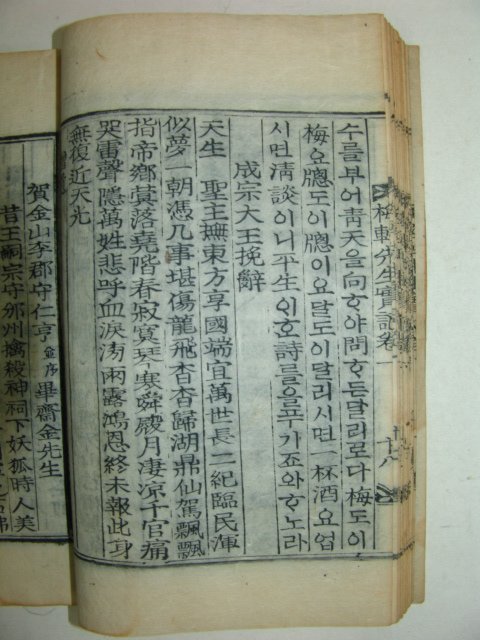 梅軒先生實記卷一
수를부어靑天을向ᄒᆞ야問ᄒᆞ든달리로다梅도이
梅요牕도이牕이요달도이달리시면一杯酒요업
시면淸談이니平生인ᄒᆞ詩를을푸기죠와ᄒᆞ노라
成宗大王挽辭
天生 聖王撫東方享國端宜萬世長二紀臨民渾
似夢一朝憑几事堪傷龍飛杳杳歸湖鼎仙駕飄飄
指帝鄕蓂落堯階春寂寞琴寒舜殿月凄涼千官痛
哭雷聲隱萬姓悲呼血淚滂雨露鴻恩終未報此身
無復近天光
賀金山李郡守仁亨 並序 畢齋金先生
昔王嗣宗守邠州擒殺神祠下妖狐時人美